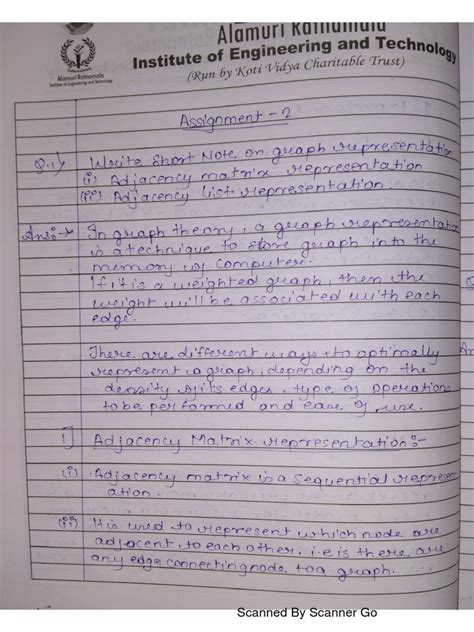 Alamuri Ratnamala
Institute of Engineering and Technology
(Run by Koti Vidya Charitable Trust)
Alamuri Ratnamala
Institute of Engineering and Technology
Assignment - 2
Q.1) Write Short Note on graph representation
(i) Adjacency matrix representation
(ii) Adjacency list representation.
Ans:→ In graph theory, a graph representation
is a technique to store graph into the
memory of computer.
If it is a weighted graph, then the
weight will be associated with each
edge.
There are different ways to optimally
represent a graph, depending on the
density of its edges, type of operations
to be performed and ease of use.
1] Adjacency Matrix representation:-
(i) Adjacency matrix is a sequential represent
ation.
(ii) It is used to represent which node are
adjacent to each other. i.e. is there are
any edge connecting node, to a graph.
Scanned By Scanner Go